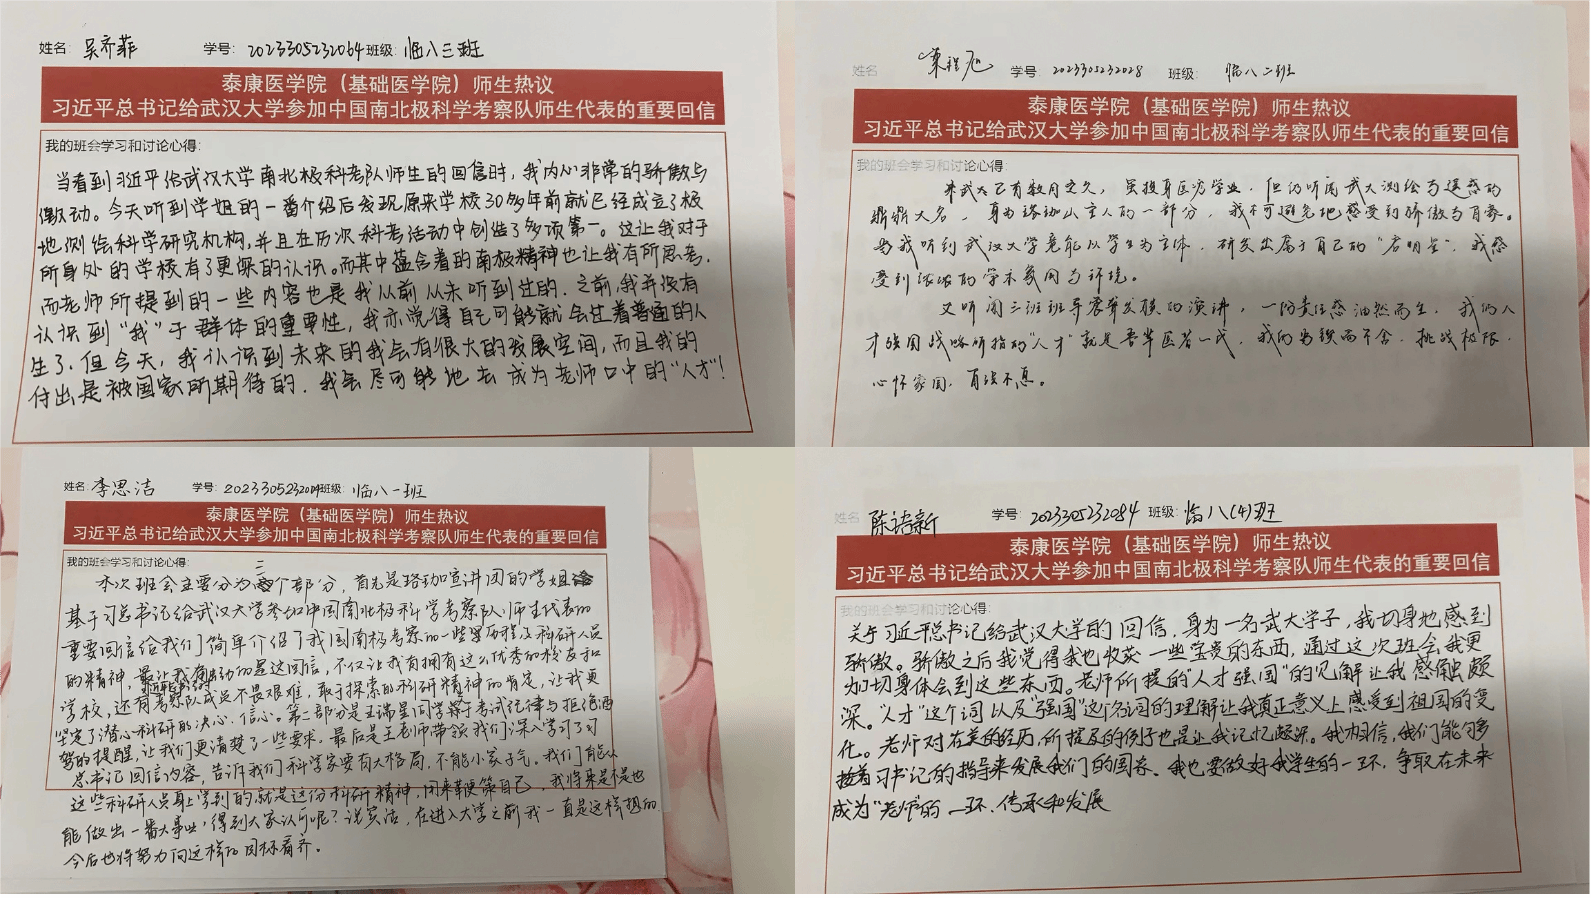 姓名: 吴齐菲 学号: 2023305232064 班级: 临八三班
泰康医学院（基础医学院）师生热议
习近平总书记给武汉大学参加中国南北极科学考察队师生代表的重要回信
我的班会学习和讨论心得:
当看到习近平给武汉大学南北极科考队师生的回信时，我内心非常的骄傲与
激动。今天听到学姐的一番介绍后发现原来学校30多年前就已经成立了极
地测绘科学研究机构,并且在历次科考活动中创造了多项第一。这让我对于
所身处的学校有了更深的认识。而其中蕴含着的南极精神也让我有所思考.
而老师所提到的一些内容也是我从前从未听到过的. 之前,我并没有
认识到“我”于群体的重要性, 我亦觉得自己可能就会过着普通的人
生了. 但今天, 我认识到未来的我会有很大的发展空间, 而且我的
付出是被国家所期待的. 我会尽可能地去成为老师口中的“人才”!
姓名 学号: 2023305232028 班级: 临八二班
泰康医学院（基础医学院）师生热议
习近平总书记给武汉大学参加中国南北极科学考察队师生代表的重要回信
我的班会学习和讨论心得:
来武大已有数月之久，虽投身医学学业，但仍听闻武大测绘与遥感的
鼎鼎大名，身为珞珈山主人的一部分，我不可避免地感受到骄傲与自豪。
当我听到武汉大学竟能以学生为主体，研发出属于自己的“启明星”，我感
受到浓浓的学术氛围与环境。
又听闻三班班导震聋发聩的演讲，一份责任感油然而生. 我的人
才强国战略所指的“人才”就是吾辈医者一代，我们当锲而不舍，挑战极限，
心怀家国，自强不息。
姓名: 李思洁 学号: 2023305232009 班级: 临八一班
泰康医学院（基础医学院）师生热议
习近平总书记给武汉大学参加中国南北极科学考察队师生代表的重要回信
我的班会学习和讨论心得:
本次班会主要分为三个部分，首先是珞珈宣讲团的学姐
基于习总书记给武汉大学参加中国南北极科学考察队师生代表的
重要回信给我们简单介绍了我国南极考察的一些历程及科研人员
的精神，最让我有触动的是这回信，不仅让我有拥有这么优秀的校友和
学校，还有考察队成员不畏艰难，敢于探索的科研精神的肯定，让我更
坚定了潜心科研的决心、信心。第二部分是王瑞星同学关于考试纪律与拒绝酒
驾的提醒，让我们更清楚了一些要求。最后是王老师带领我们深入学习了习
总书记回信内容，告诉我们科学家要有大格局，不能小家子气。我们能从
这些科研人员身上学到的就是这份科研精神，用来鞭策自己。我将来是不是也
能做出一番大事业，得到大家认可呢？说实话，在进入大学之前我一直是这样想的.
今后也将努力向这样的目标看齐。
姓名 陈诺新 学号: 2023305232084 班级: 临八(4)班
泰康医学院（基础医学院）师生热议
习近平总书记给武汉大学参加中国南北极科学考察队师生代表的重要回信
我的班会学习和讨论心得:
关于习近平总书记给武汉大学的回信，身为一名武大学子，我切身地感到
骄傲。骄傲之后我觉得我也收获一些宝贵的东西，通过这次班会我更
加切身体会到这些东西。老师所提的“人才强国”的见解让我感触颇
深。“人才”这个词以及“强国”这个名词的理解让我真正意义上感受到祖国的变
化。老师对在美的经历,所提及的例子也是让我记忆颇深。我相信，我们能够
接着习书记的指导来发展我们的国家。我也要做好我学生的一环，争取在未来
成为“老师”的一环、传承和发展